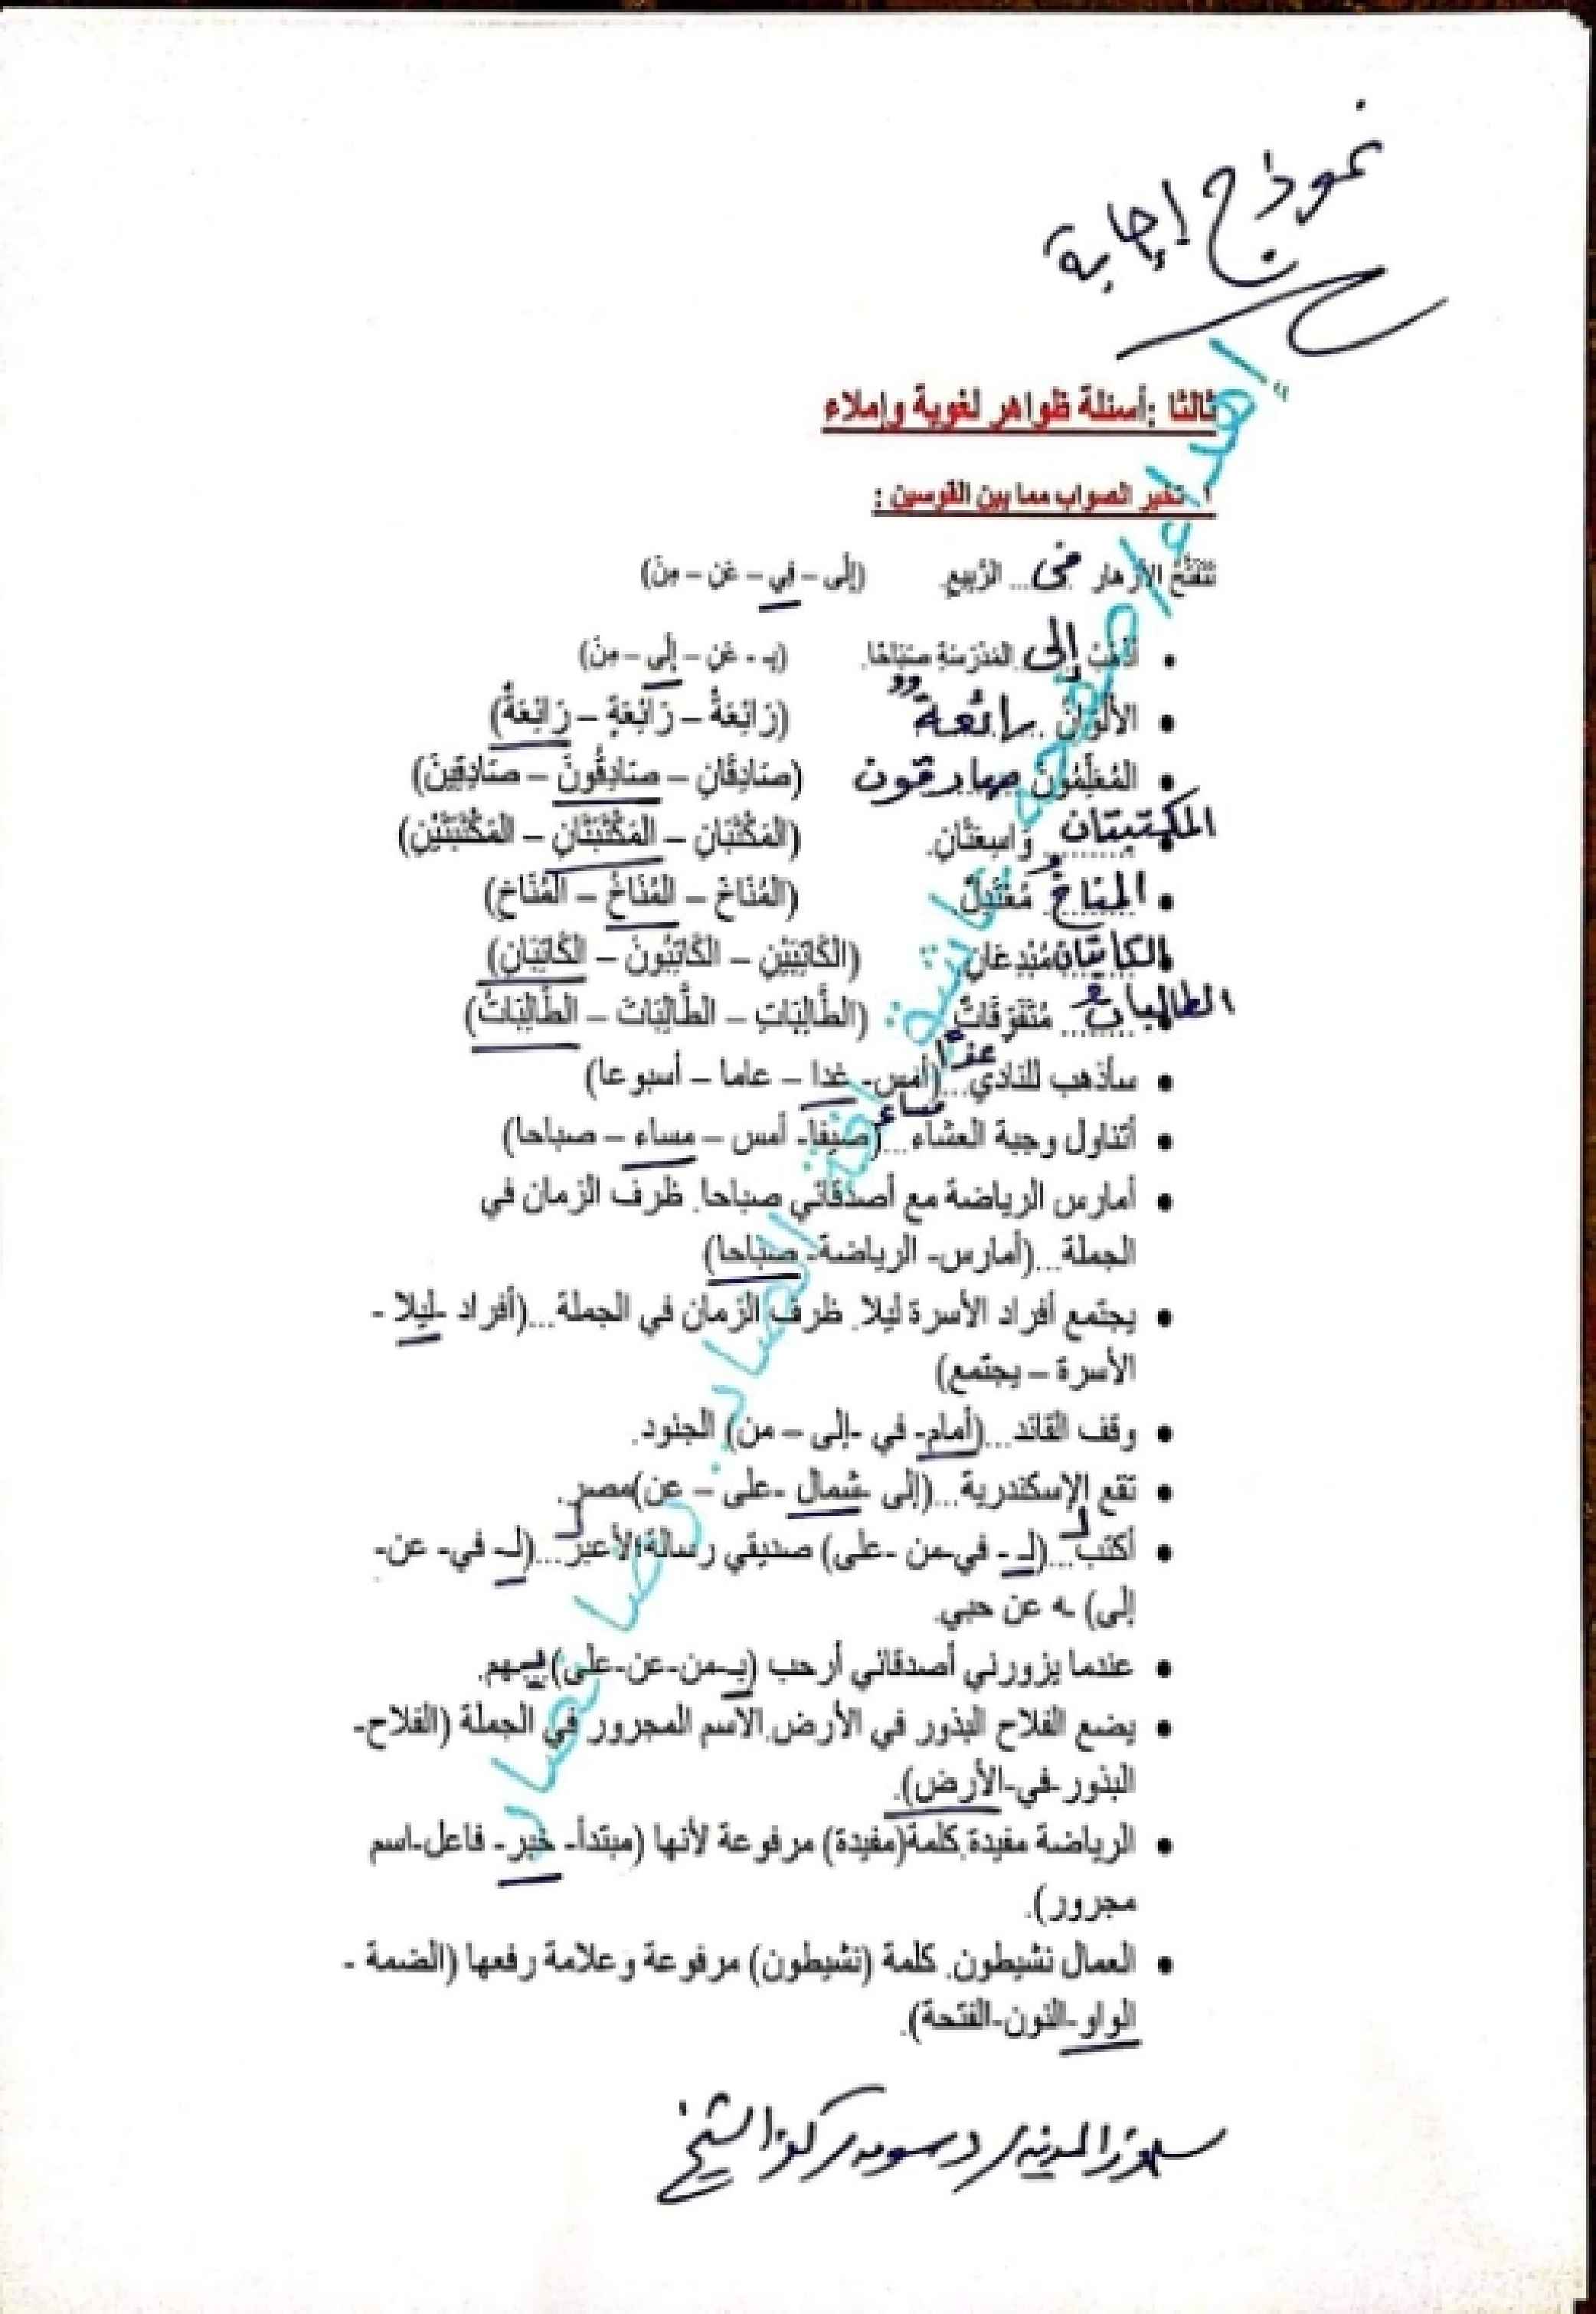 نموذج إجابة
ثالثا :أسئلة ظواهر لغوية وإملاء
١ تخير الصواب مما بين القوسين :
تَتَفَتَّحُ الأزهار في... الرَّبِيعِ. (إلى – في – عَن – مِن)
• أذهَبُ إلى المَدْرَسَةِ صَبَاحًا. (بـ - عَن – إلى – مِن)
• الألْوَانُ .رائعةٌ (رَائِعَةً – رَائِعَةٍ – رَائِعَةٌ)
• المُعَلِّمُونَ صادقون (صَادِقَانِ – صَادِقُونَ – صَادِقِينَ)
• المكتبتان ........ وَاسِعَتَانِ. (المَكْتَبَانِ – المَكْتَبَتَانِ – المَكْتَبَتَيْنِ)
• المناخُ مُعْتَدِلٌ (المُنَاخَ – المُنَاخُ – المُنَاخِ)
• الكاتبان مُبْدِعَانِ (الكَاتِبَيْنِ – الكَاتِبُونَ – الكَاتِبَانِ)
• الطالباتُ .... مُتَفَوِّقَاتٌ (الطَّالِبَاتِ – الطَّالِبَاتَ – الطَّالِبَاتُ)
• سأذهب للنادي...غدًا (أمس- غدا – عاما – أسبوعا)
• أتناول وجبة العشاء...مساء (صيفا- أمس – مساء – صباحا)
• أمارس الرياضة مع أصدقائي صباحا. ظرف الزمان في
الجملة...(أمارس- الرياضة- صباحا)
• يجتمع أفراد الأسرة ليلا. ظرف الزمان في الجملة...(أفراد -ليلا -
الأسرة – يجتمع)
• وقف القائد...(أمام- في -إلى – من) الجنود.
• تقع الإسكندرية...(إلى -شمال -على – عن)مصر.
• أكتب...لـ(لـ - في-من -على) صديقي رسالة لأعبر...لـ(لـ- في- عن-
إلى) ـه عن حبي.
• عندما يزورني أصدقائي أرحب (بـ-من-عن-على)بـهم.
• يضع الفلاح البذور في الأرض.الاسم المجرور في الجملة (الفلاح-
البذور-في-الأرض).
• الرياضة مفيدة.كلمة(مفيدة) مرفوعة لأنها (مبتدأ- خبر- فاعل-اسم
مجرور).
• العمال نشيطون. كلمة (نشيطون) مرفوعة وعلامة رفعها (الضمة -
الواو-النون-الفتحة).